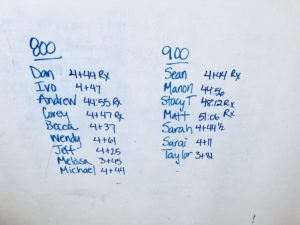 800
Dan 4+44 Rx
Ivo 4+47
Andrew 44:55 Rx
Corey 4+47 Rx
Becca 4+37
Wendy 4+61
Jeff 4+25
Melissa 3+45
Michael 4+44
900
Sean 4+44 Rx
Manon 44:56
Stacy T 48:12 Rx
Matt 51:06 Rx
Sarah 4+41 1/2
Sarai 4+11
Taylor 3+81